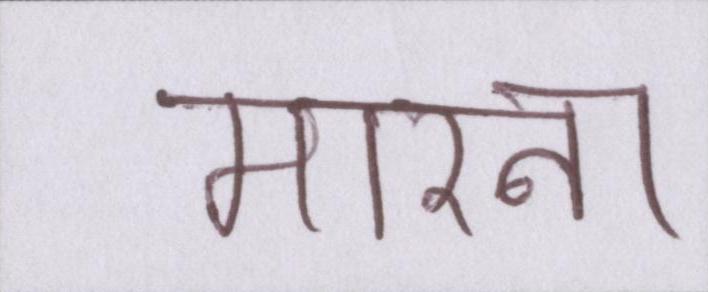 मारना